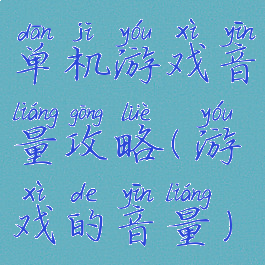 dān jī yóu xì yīn
单机游戏音
liáng gōng lüè yóu
量攻略(游
xì de yīn liáng
戏的音量)